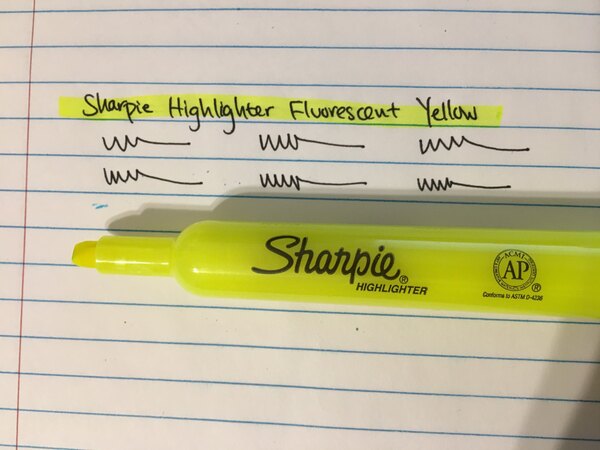 Sharpie Highlighter Fluorescent Yellow
Sharpie®
HIGHLIGHTER
ACMI
AP ®
Conforms to ASTM D-4236